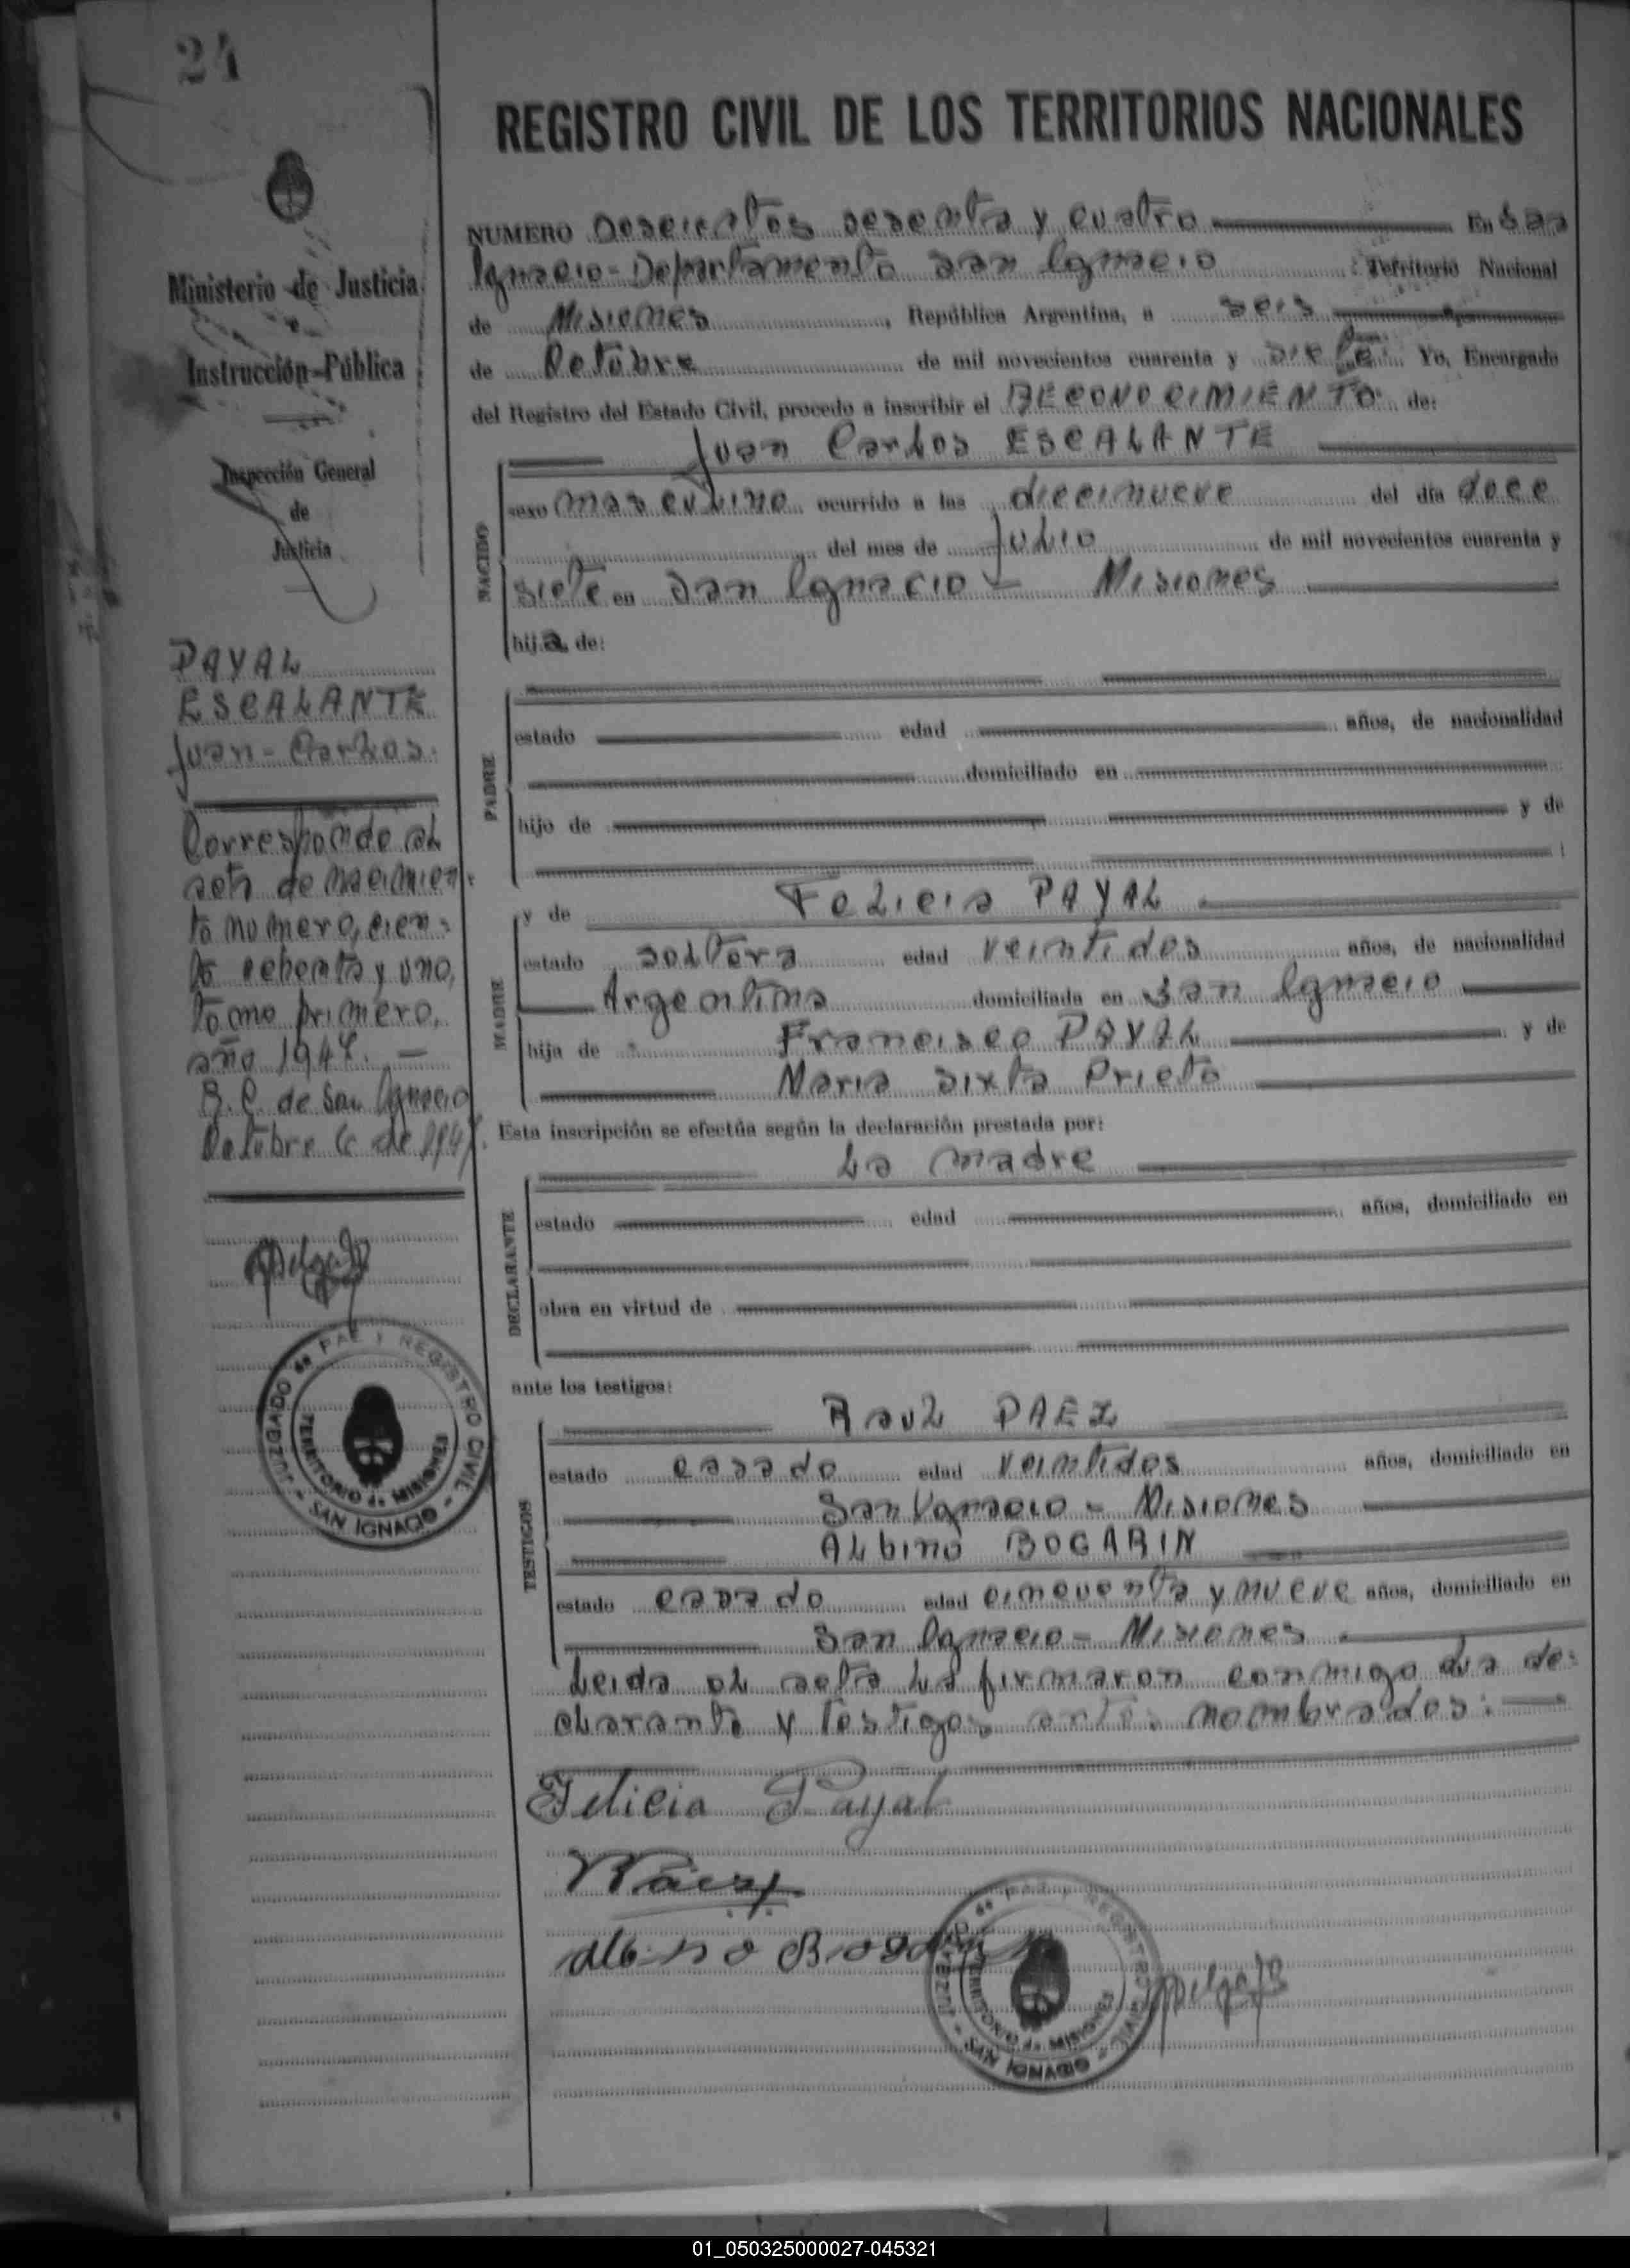 24
REGISTRO CIVIL DE LOS TERRITORIOS NACIONALES
Ministerio de Justicia
e
Instrucción Pública
Inspección General
de
Justicia
PAYAL
ESCALANTE
Juan - Carlos.
Corresponde al
acta de nacimien-
to número, cien-
to ochenta y uno,
tomo primero,
año 1947. —
R. C. de San Ignacio
Octubre 6 de 1947.
JUZGADO de PAZ Y REGISTRO CIVIL
TERRITORIO de MISIONES
- SAN IGNACIO -
NUMERO Doscientos sesenta y cuatro En San
Ignacio - Departamento San Ignacio Territorio Nacional
de Misiones, República Argentina, a seis
de Octubre de mil novecientos cuarenta y siete. Yo, Encargado
del Registro del Estado Civil, procedo a inscribir el RECONOCIMIENTO de:
NACIDO
Juan Carlos ESCALANTE
sexo masculino ocurrido a las diecinueve del día doce
del mes de Julio de mil novecientos cuarenta y
siete en San Ignacio - Misiones
hija de:
PADRE
estado edad años, de nacionalidad
domiciliado en
hijo de y de
MADRE
y de Felicia PAYAL
estado soltera edad veintidos años, de nacionalidad
Argentina domiciliada en San Ignacio
hija de Francisco PAYAL y de
Maria Sixta Prieto
Esta inscripción se efectúa según la declaración prestada por:
DECLARANTE
La madre
estado edad años, domiciliado en
obra en virtud de
ante los testigos:
TESTIGOS
Raul PAEZ
estado casado edad veintidos años, domiciliado en
San Ignacio - Misiones
Albino BOGARIN
estado casado edad cincuenta y nueve años, domiciliado en
San Ignacio - Misiones
Leida el acta la firmaron conmigo la de-
clarante y testigos antes nombrados: —
Felicia Payal
RPáez
Albino Bogarin
JUZGADO de PAZ Y REGISTRO CIVIL
TERRITORIO de MISIONES
- SAN IGNACIO -
01_050325000027-045321